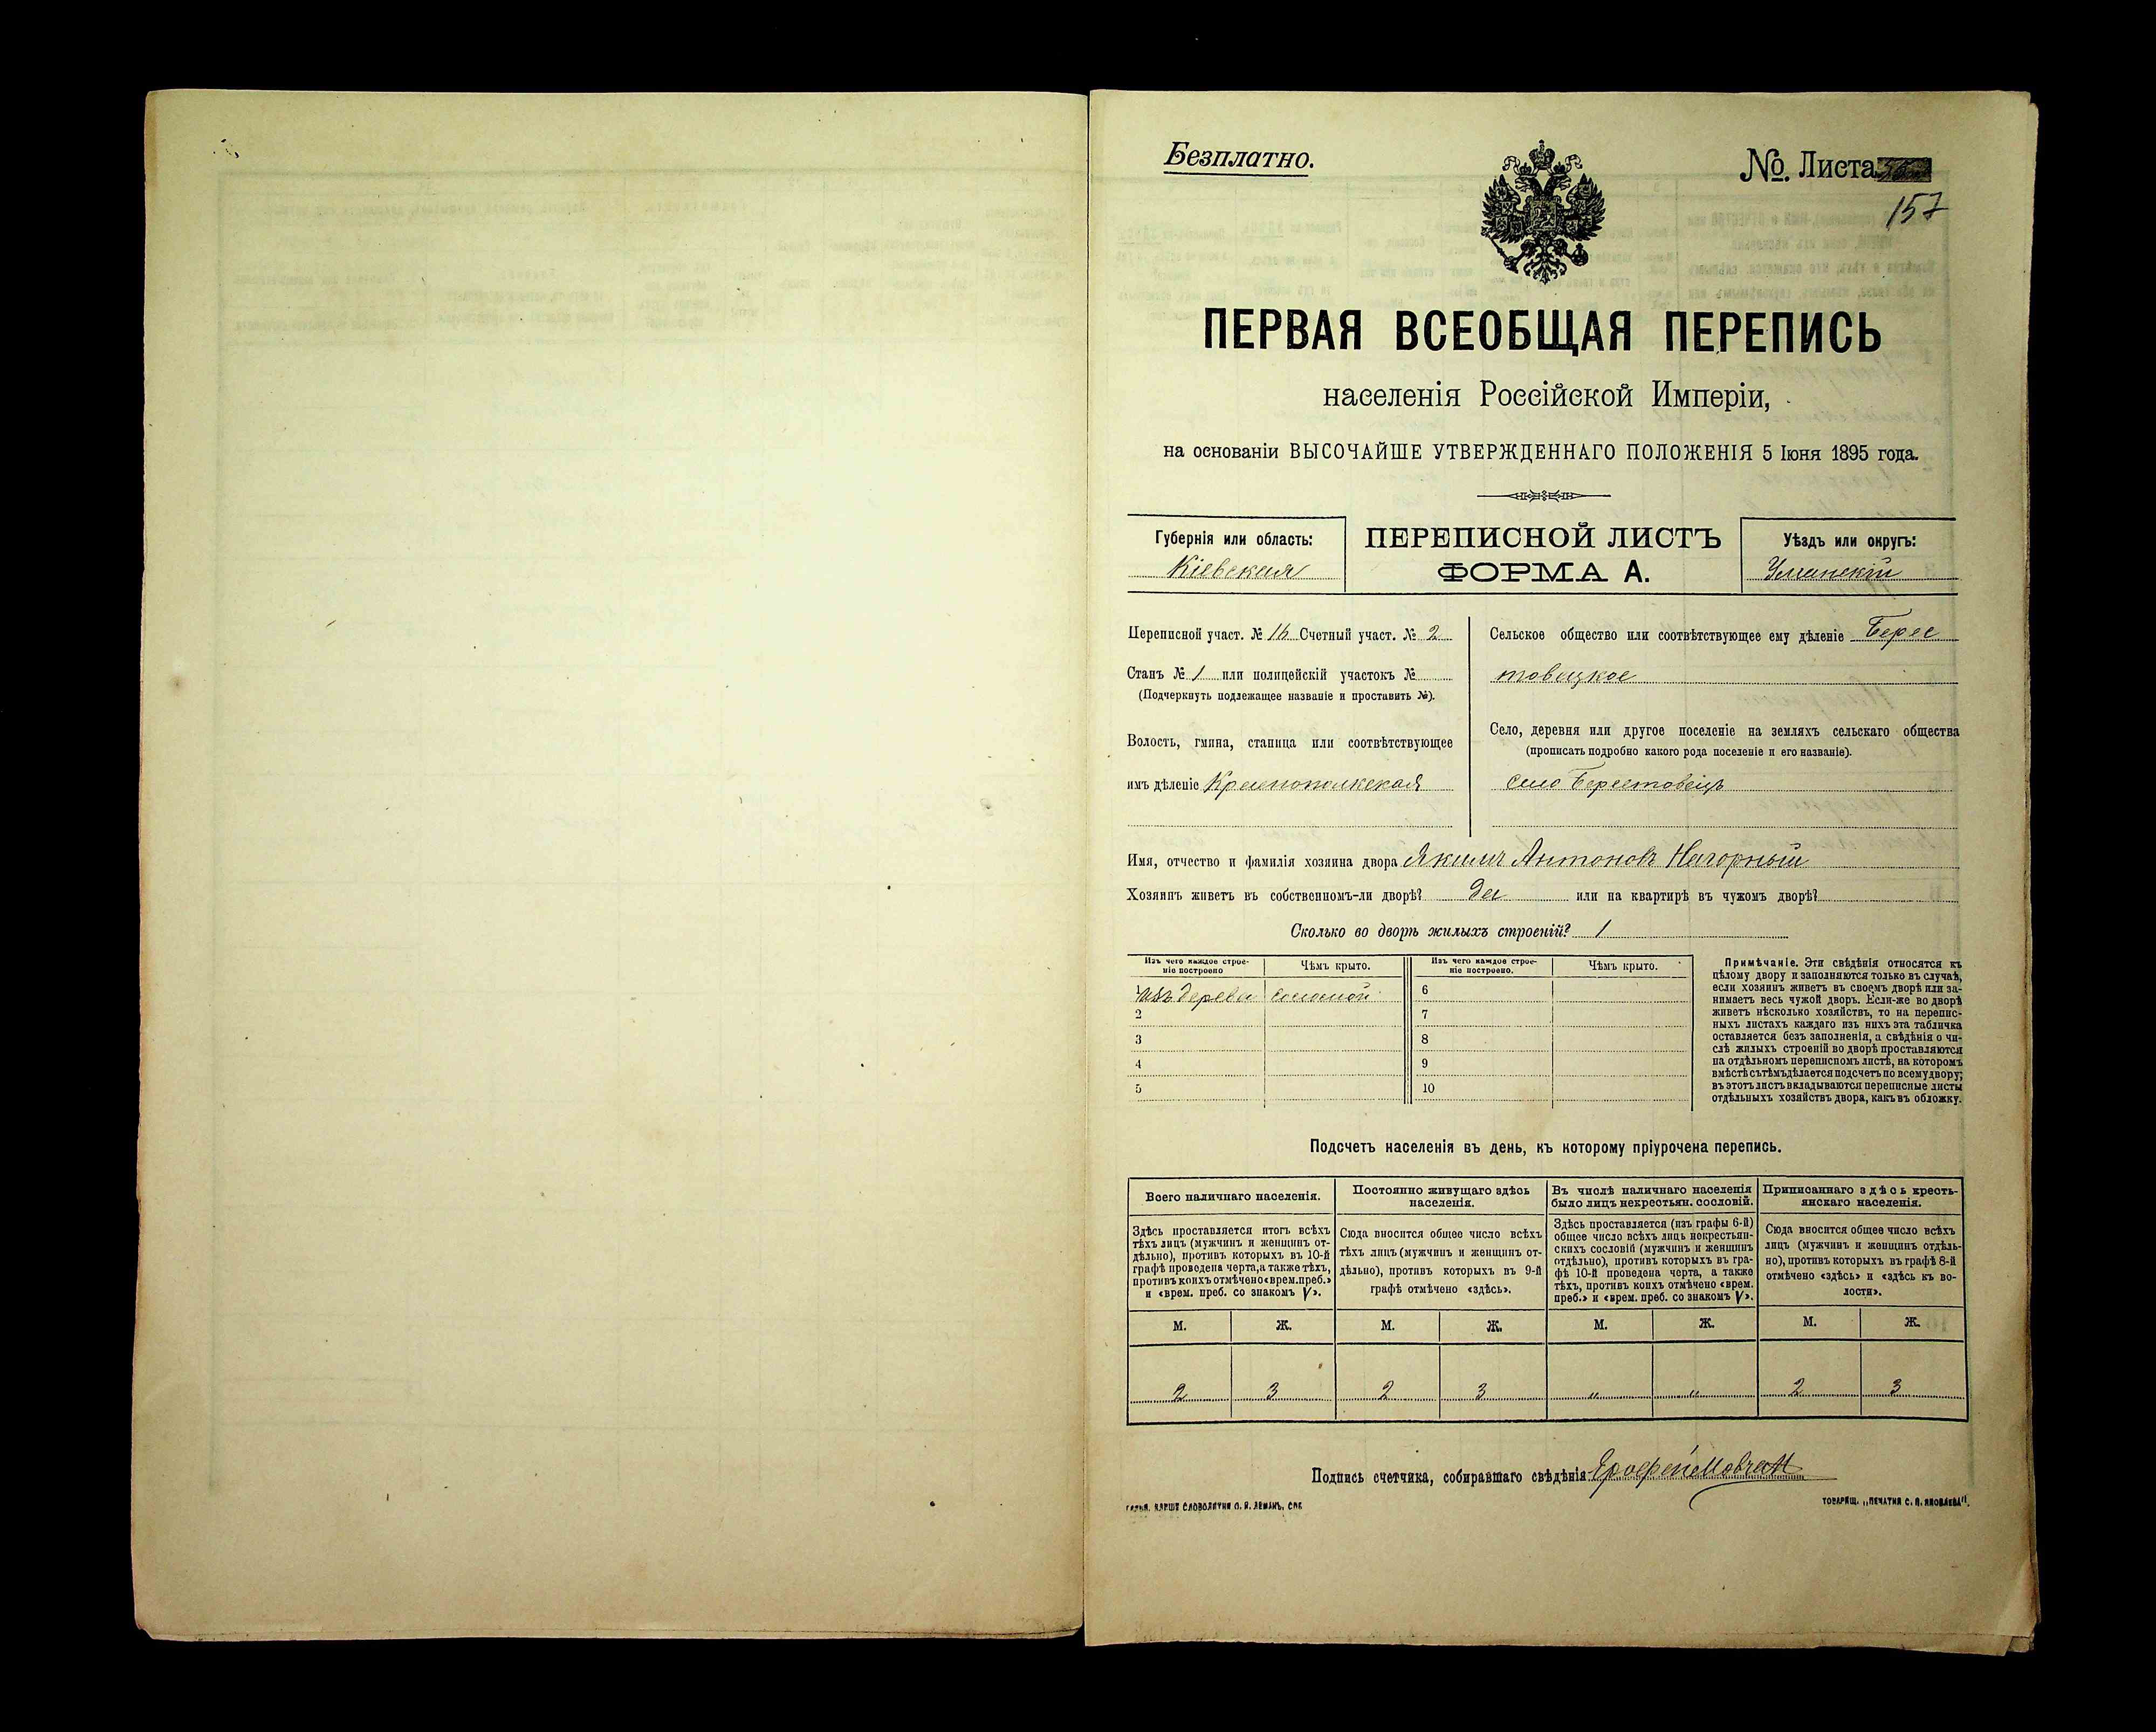 Безплатно.
№. Листа
157
ПЕРВАЯ ВСЕОБЩАЯ ПЕРЕПИСЬ
населенія Россійской Имперіи,
на основаніи ВЫСОЧАЙШЕ УТВЕРЖДЕННАГО ПОЛОЖЕНІЯ 5 Іюня 1895 года.
Губернія или область:
Кіевская
ПЕРЕПИСНОЙ ЛИСТЪ
ФОРМА А.
Уѣздъ или округъ:
Уманскій
Переписной участ. № 16 Счетный участ. № 2
Станъ № 1 или полицейскій участокъ №
(Подчеркнуть подлежащее названіе и проставить №).
Волость, гмина, станица или соотвѣтствующее
имъ дѣленіе
Сельское общество или соотвѣтствующее ему дѣленіе Берес
товецкое
Село, деревня или другое поселеніе на земляхъ сельскаго общества
(прописать подробно какого рода поселеніе и его названіе).
село Берестовецъ
Имя, отчество и фамилія хозяина двора Якимъ Антоновъ Нагорный
Хозяинъ живетъ въ собственномъ-ли дворѣ? да или на квартирѣ въ чужомъ дворѣ?
Сколько во дворѣ жилыхъ строеній? 1
Изъ чего каждое строе-
ніе построено
Чѣмъ крыто.
Изъ чего каждое строе-
ніе построено.
Чѣмъ крыто.
изъ дерева соломой
6
2
7
3
8
4
9
5
10
Примѣчаніе. Эти свѣдѣнія относятся къ
цѣлому двору и заполняются только въ случаѣ,
если хозяинъ живетъ въ своемъ дворѣ или за-
нимаетъ весь чужой дворъ. Если-же во дворѣ
живетъ нѣсколько хозяйствъ, то на перепис-
ныхъ листахъ каждаго изъ нихъ эта табличка
оставляется безъ заполненія, а свѣдѣнія о чи-
слѣ жилыхъ строеній во дворѣ проставляются
на отдѣльномъ переписномъ листѣ, на которомъ
вмѣстѣ сътѣмъ дѣлается подсчетъ по всему двору;
въ этотъ листъ вкладываются переписные листы
отдѣльныхъ хозяйствъ двора, какъ въ обложку.
Подсчетъ населенія въ день, къ которому пріурочена перепись.
Всего наличнаго населенія.
Здѣсь проставляется итогъ всѣхъ
тѣхъ лицъ (мужчинъ и женщинъ от-
дѣльно), противъ которыхъ въ 10-й
графѣ проведена черта, а также тѣхъ,
противъ коихъ отмѣчено «врем. преб.»
и «врем. преб. со знакомъ V».
Постоянно живущаго здѣсь
населенія.
Сюда вносится общее число всѣхъ
тѣхъ лицъ (мужчинъ и женщинъ от-
дѣльно), противъ которыхъ въ 9-й
графѣ отмѣчено «здѣсь».
Въ числѣ наличнаго населенія
было лицъ некрестьян. сословій.
Здѣсь проставляется (изъ графы 6-й)
общее число всѣхъ лицъ некрестьян-
скихъ сословій (мужчинъ и женщинъ
отдѣльно), противъ которыхъ въ гра-
фѣ 10-й проведена черта, а также
тѣхъ, противъ коихъ отмѣчено «врем.
преб.» и «врем. преб. со знакомъ V».
Приписаннаго здѣсь кресть-
янскаго населенія.
Сюда вносится общее число всѣхъ
лицъ (мужчинъ и женщинъ отдѣль-
но), противъ которыхъ въ графѣ 8-й
отмѣчено «здѣсь» и «здѣсь къ во-
лости».
М. Ж. М. Ж. М. Ж. М. Ж.
2 3 2 3 „ „ 2 3
Подпись счетчика, собиравшаго свѣдѣнія Ерофей Мовчан
СЛОВОЛИТНИ О. И. ЛЕМАНЪ, СПБ.
ТОВАРИЩ. „ПЕЧАТНЯ С. П. ЯКОВЛЕВА".